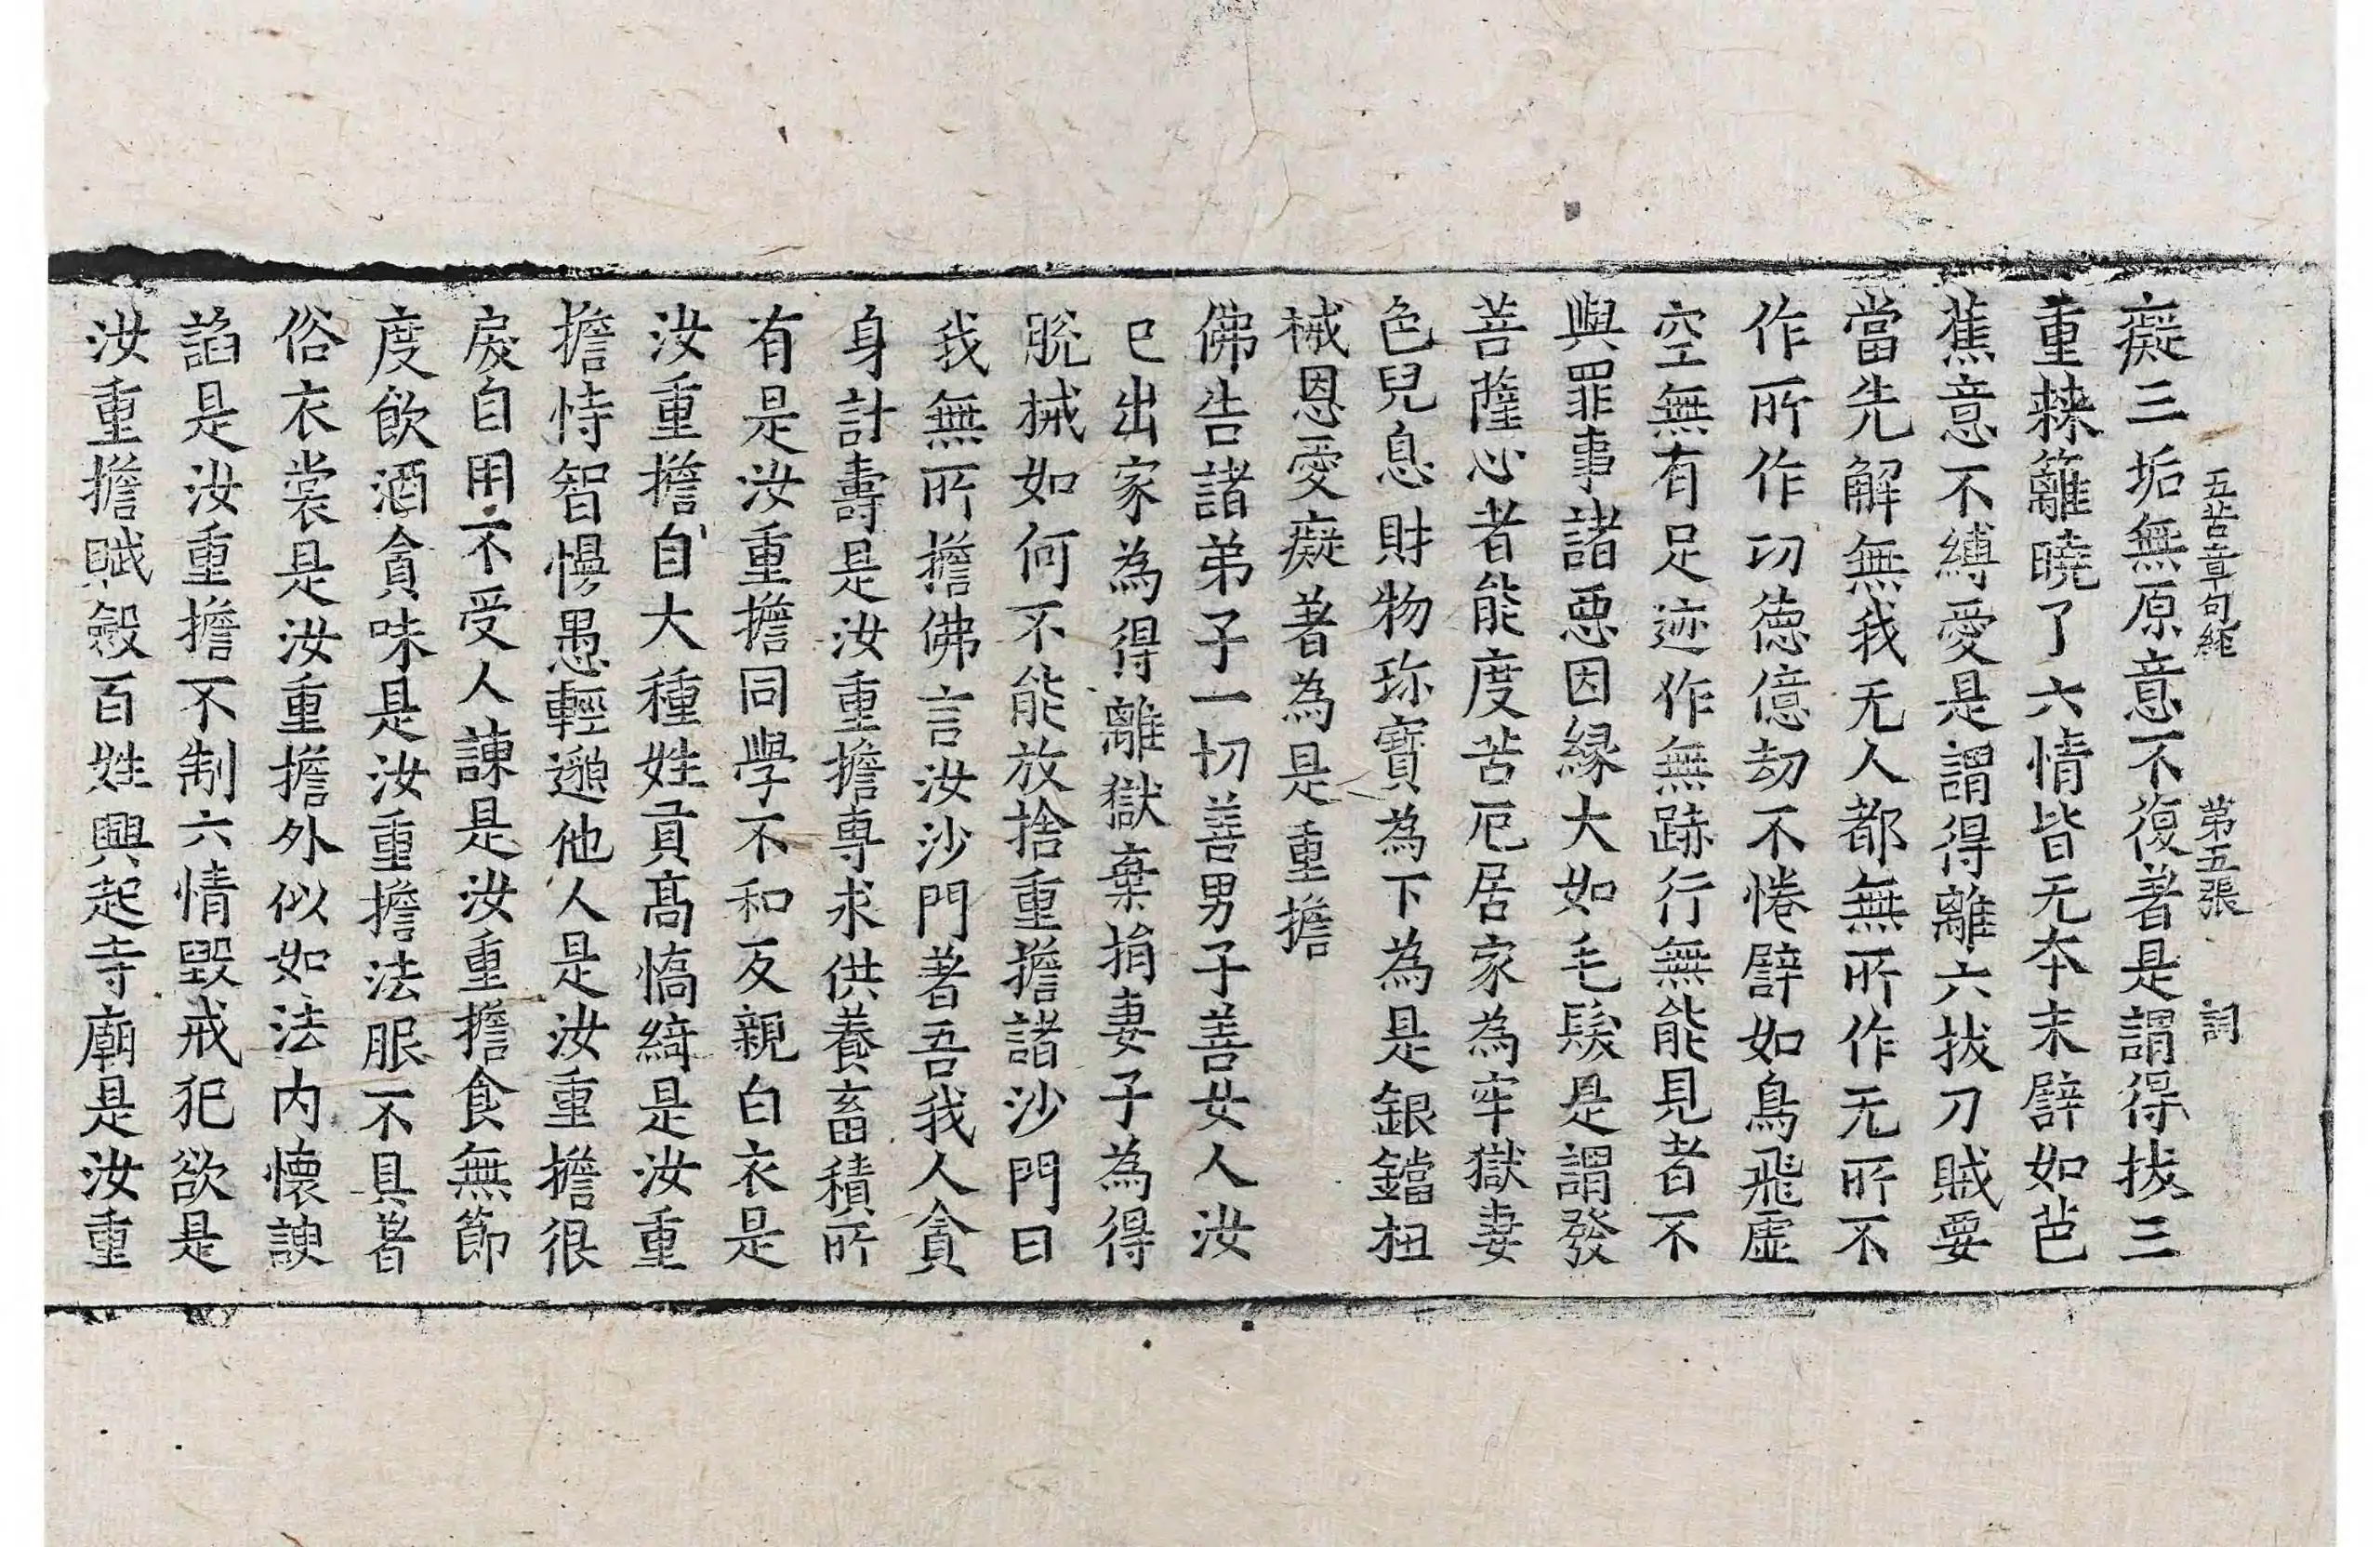 五苦章句經 第五張 詞
癡三垢無原意不復著是謂得拔三
重蕀籬曉了六情皆无本末譬如芭
蕉意不縛愛是謂得離六拔刀賊要
當先解無我无人都無所作无所不
作所作功德億劫不惓譬如鳥飛虛
空無有足迹作無跡行無能見者不
與罪事諸惡因緣大如毛髮是謂發
菩薩心者能度苦厄居家為牢獄妻
色兒息財物珎寶為下為是鋃鐺杻
械恩愛癡著為是重擔
佛告諸弟子一切善男子善女人汝
已出家為得離獄棄捐妻子為得
脫械如何不能放捨重擔諸沙門曰
我無所擔佛言汝沙門著吾我人貪
身計壽是汝重擔專求供養畜積所
有是汝重擔同學不和反親白衣是
汝重擔自大種姓貢高憍綺是汝重
擔恃智慢愚輕邈他人是汝重擔很
戾自用不受人諫是汝重擔食無節
度飲酒貪味是汝重擔法服不具著
俗衣裳是汝重擔外似如法內懷諛
諂是汝重擔不制六情毀戒犯欲是
汝重擔賦斂百姓興起寺廟是汝重